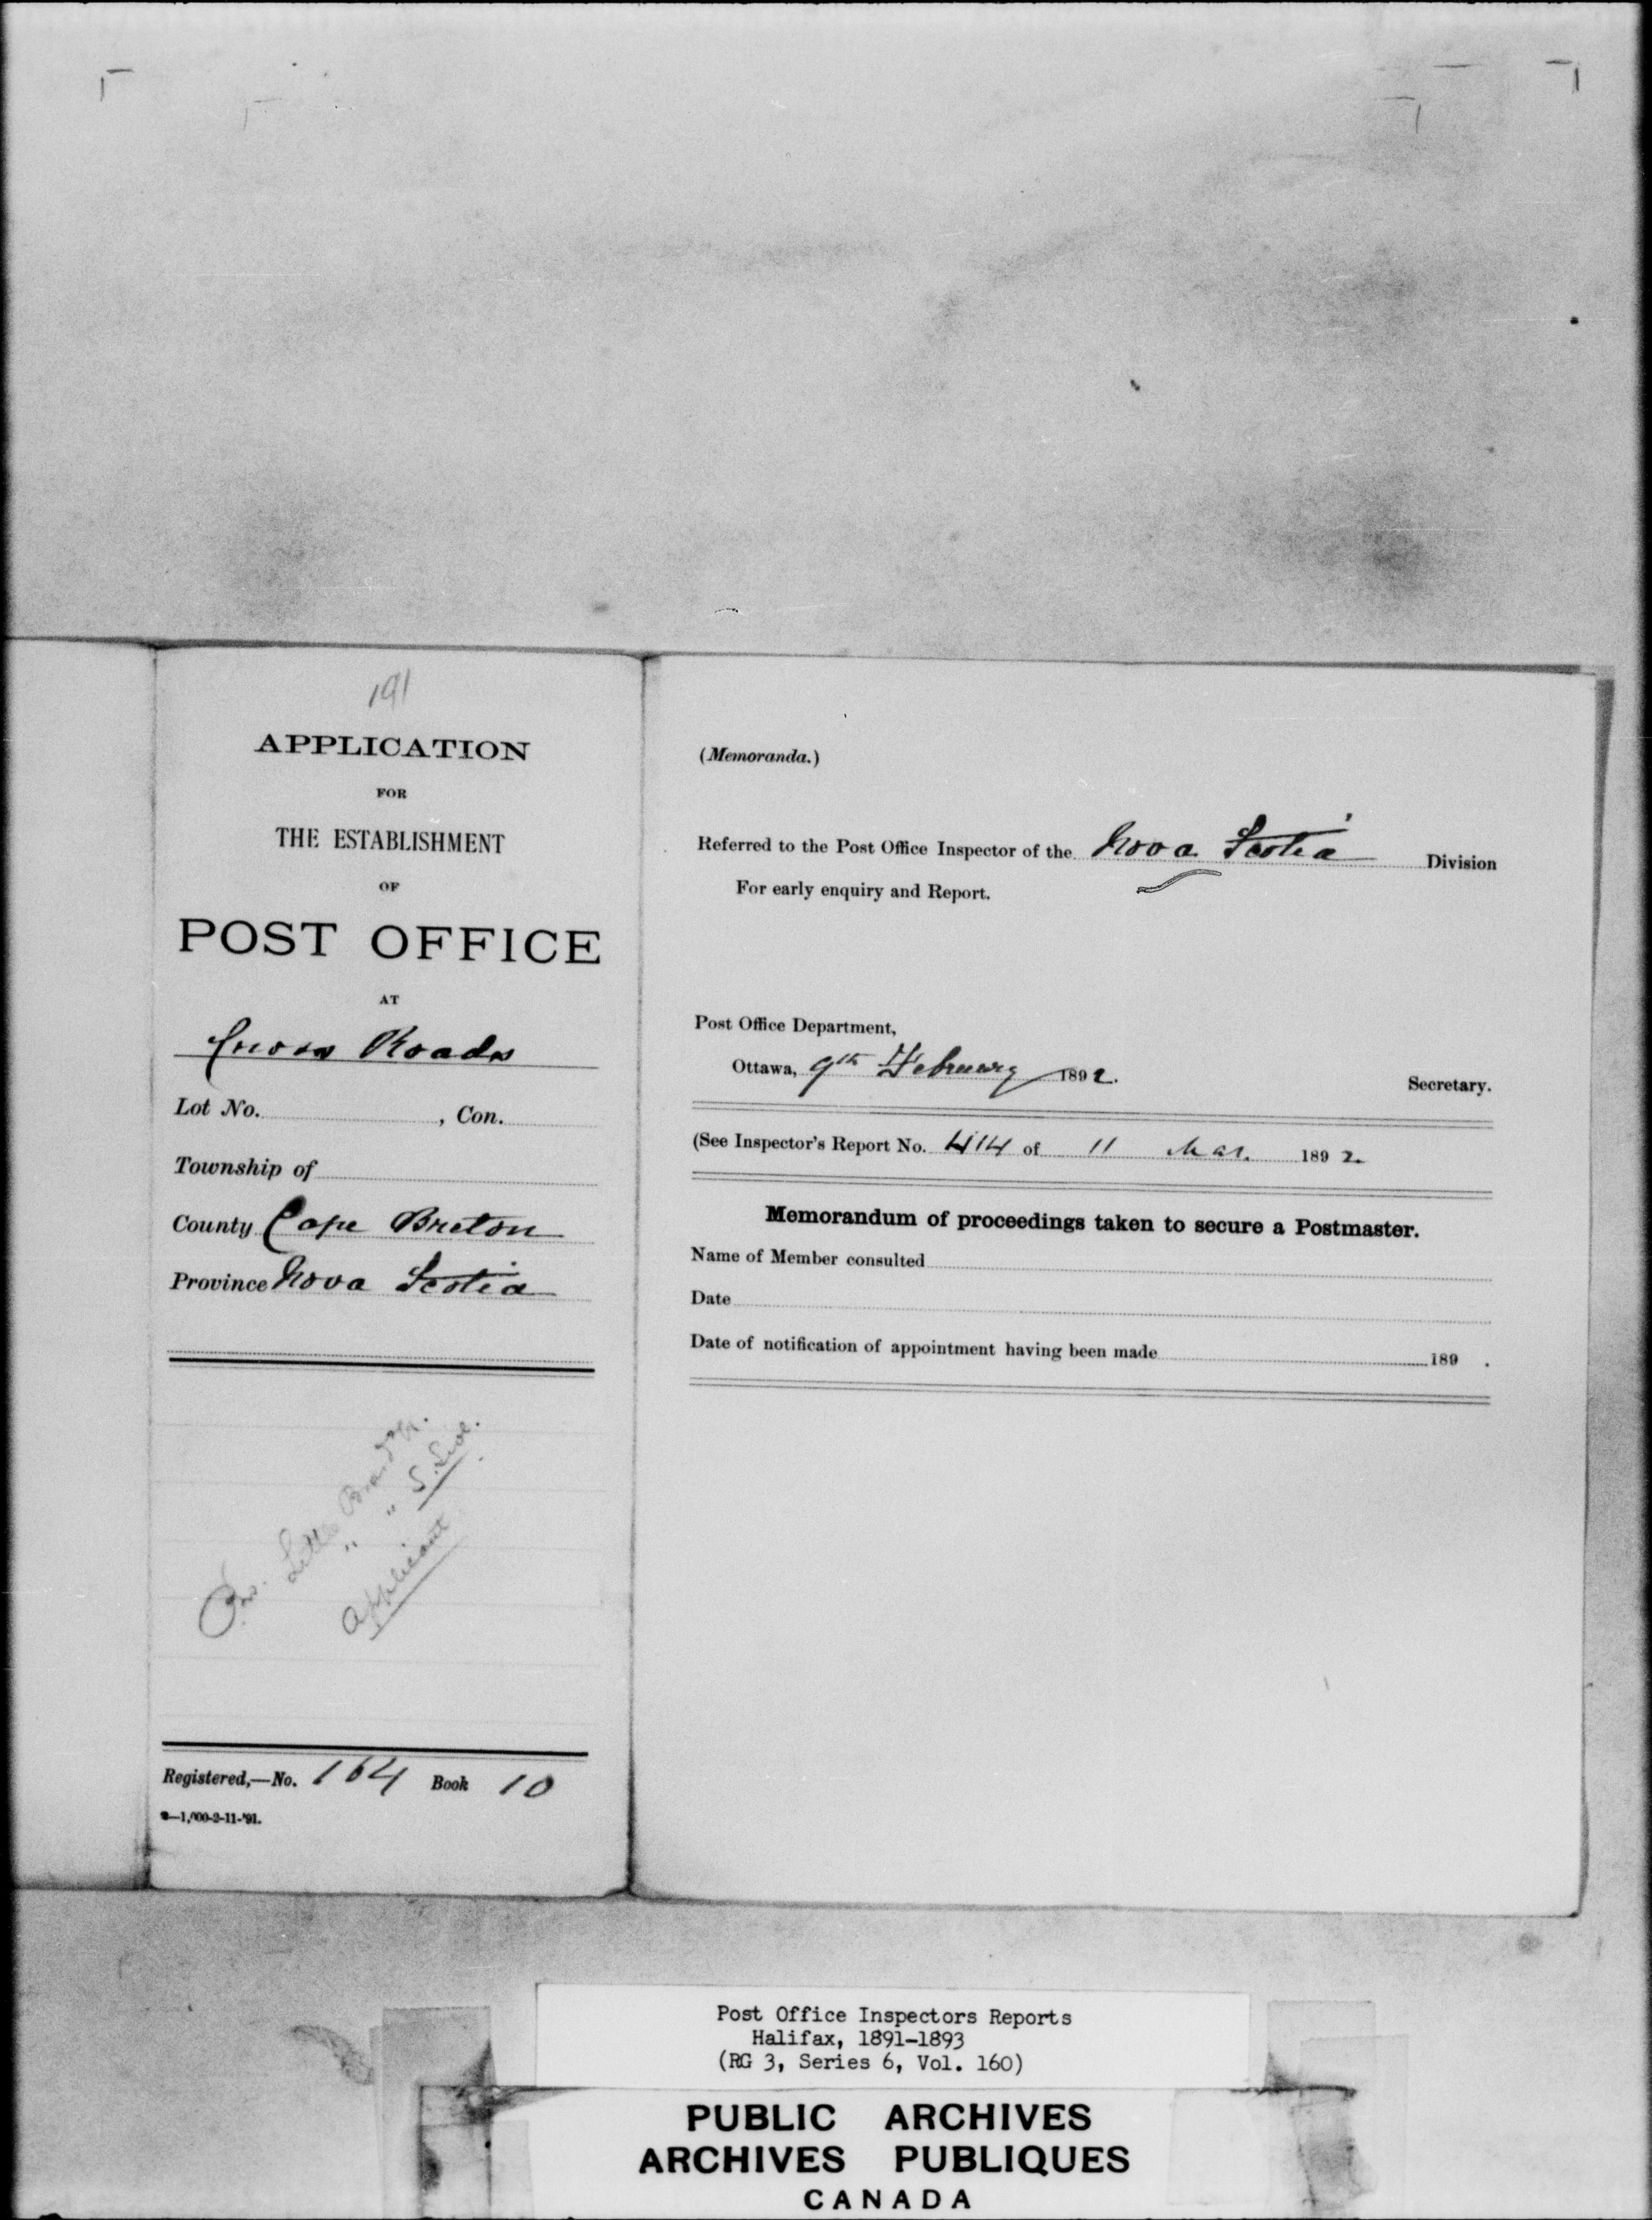 191
APPLICATION
FOR
THE ESTABLISHMENT
OF
POST OFFICE
AT
Cross Roads
Lot No. , Con.
Township of
County Cape Breton
Province Nova Scotia
Little
" "
Applicant
Registered,—No. 164 Book 10
—1,000-2-11-'91.
(Memoranda.)
Referred to the Post Office Inspector of the Nova Scotia Division
For early enquiry and Report.
Post Office Department,
Ottawa, 9th February 1892.
Secretary.
(See Inspector's Report No. 414 of 11 Mar. 1892
Memorandum of proceedings taken to secure a Postmaster.
Name of Member consulted
Date
Date of notification of appointment having been made 189 .
Post Office Inspectors Reports
Halifax, 1891-1893
(RG 3, Series 6, Vol. 160)
PUBLIC ARCHIVES
ARCHIVES PUBLIQUES
CANADA